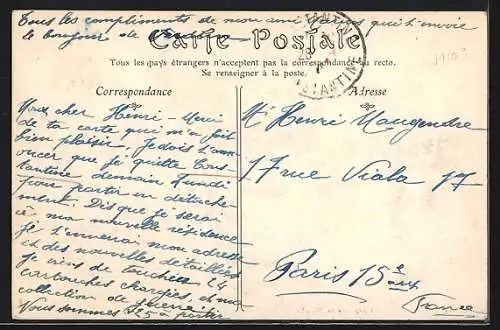 Tous les compliments de mon ami qui t'envoie
le bonjour de
Carte Postale
CONSTANTINE
CONSTANTINE
1910?
Tous les pays étrangers n'acceptent pas la correspondance au recto.
Se renseigner à la poste.
Correspondance
Mon cher Henri - Merci
de ta carte qui m'a fait
bien plaisir, je dois t'ann
oncer que je quitte Cons
tantine demain Lundi
pour partir en détache
ment. Dès que je serai
à ma nouvelle résidence
je t'enverrai mon adresse
et des nouvelles détaillées
Je viens de toucher 24
cartouches chargées, et ma
collection de guerre.
Nous sommes 25 à partir
Adresse
Mr Henri Maugendre
17 rue Viala 17
Paris 15e arr
France